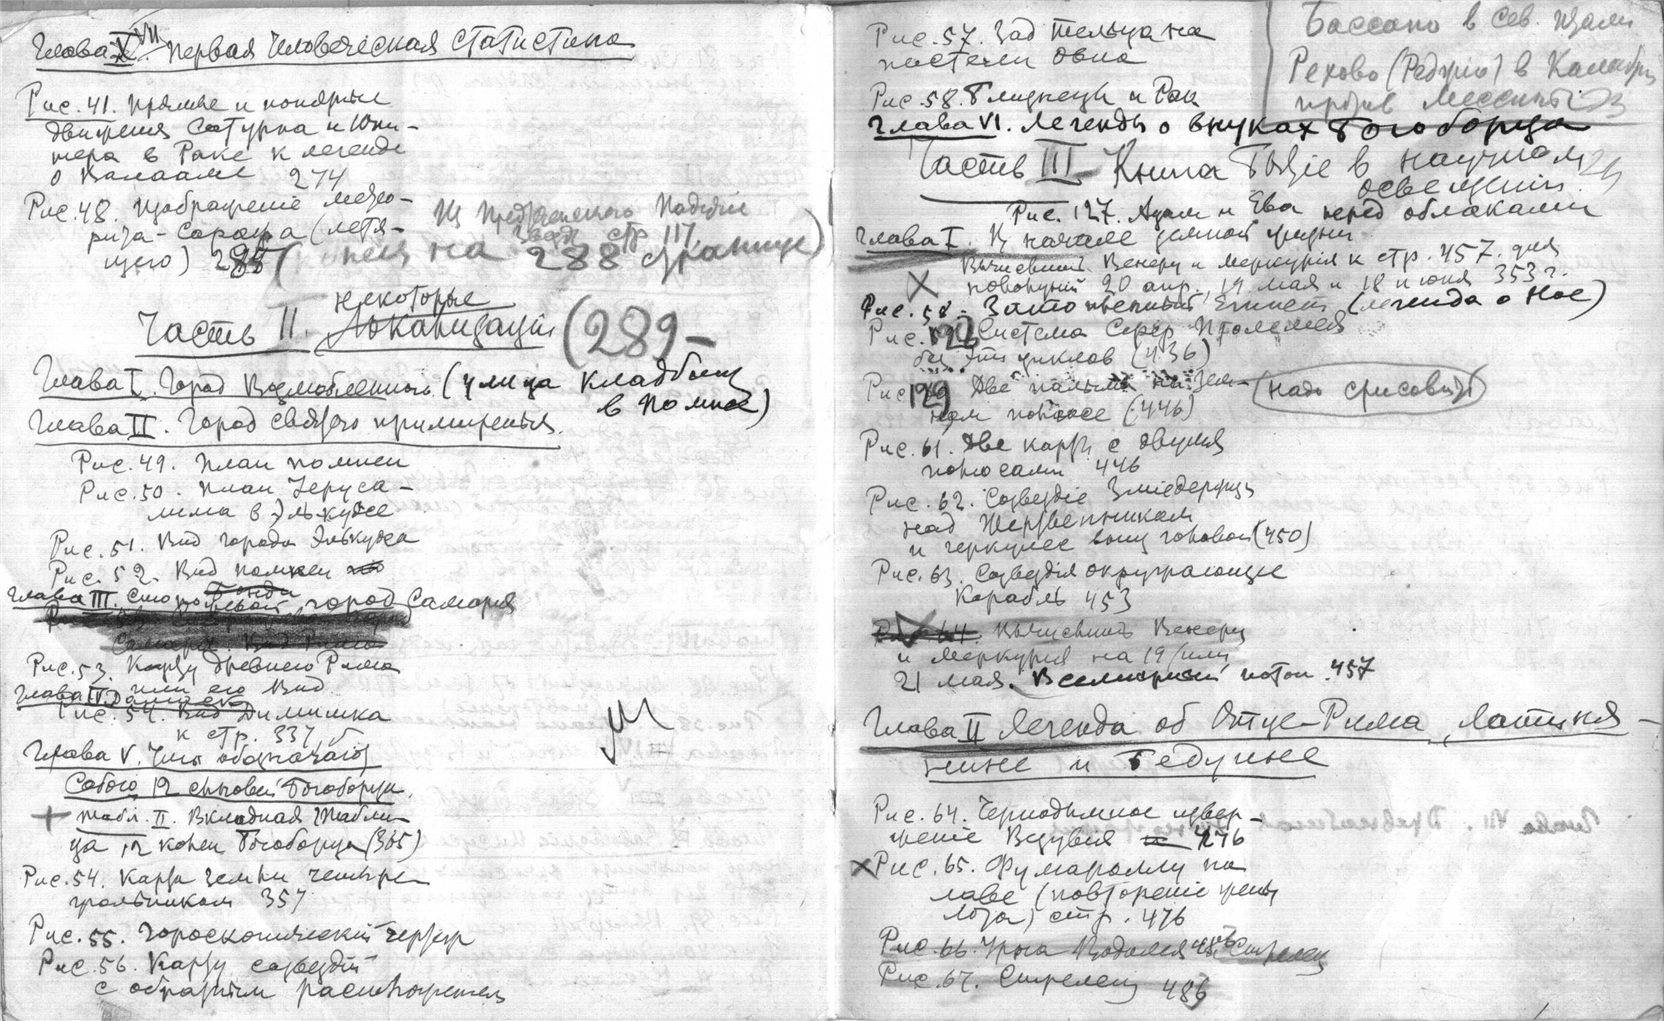 Глава XVII. Первая Человеческая статистика
Рис. 41. Прямые и попятные
движения Сатурна и Юпи-
тера в Раке к легенде
о Валааме 274
Рис. 48. Изображеніе
(летя-
щего) 285
288 страницу)
стр 117
некоторые
Часть II. Локализаціи (289-
Глава I. Город Возлюбленного (улица кладбищ
в Помпее)
Глава II. Город святого примиренья.
Рис. 49. План Помпеи
Рис. 50. План Іеруса-
лима в Элькудсе
Рис. 51. Вид города Элькудса
Рис. 52. Вид Помпеи
Глава III. город Самария
Рис. 53. Карту древнего Рима
или его Вид
Глава IV. Дамаск
Рис. 54. Вид Димишка
к стр. 337
Глава V. обозначают
Собою 12 сыновей Богоборца.
табл. II. Вкладная Табли-
ца 12 колен Богоборца (305)
Рис. 54. Карта Земли четыре
угольником 357
Рис. 55. Гороскопический чертеж
Рис. 56. Карту созвездий
с обратным расположением
Рис. 57. Зад Тельца на
постели Овна
Рис. 58. Близнецы и Рак
Глава VI. Легенды о внуках Богоборца
Бассано в Сев. Италии
Рехово (Реджио) в Калабрии
против Мессины
Часть III. Книга Бытіе в научном
освещеніи.
Рис. 127. Адам и Ева перед облаками
Глава I. В начале земной жизни
Вычислить Венеру и Меркурия к стр. 457. для
20 апр., 19 мая и 18 июня 353 г.
Рис. 58. Затопленный Египет (легенда о Ное)
Рис. 128 Система Сфер Птолемея
без эпициклов (436)
Рис. 129 Две на зем-
ном поясе (446)
(надо срисовать)
Рис. 61. Две карты с двумя
полюсами 446
Рис. 62. Созвездіе Змиедержца
над Жертвенником
и Геркулес вниз головой (450)
Рис. 63. Созвездія окружающие
Корабль 453
Вычислить Венеру
и Меркурия на 19 или
21 мая. Всемирный потоп. 457
Глава II Легенда об Отце-Рима, Латиня-
нине и Бедуине
Рис. 64. Чернодымное извер-
жение Везувия 476
Рис. 65. Фумароллы на
лаве (повторение жены
Лота) стр. 476
Рис. 66. Урна Водолея
Рис. 67. Стрелец 486